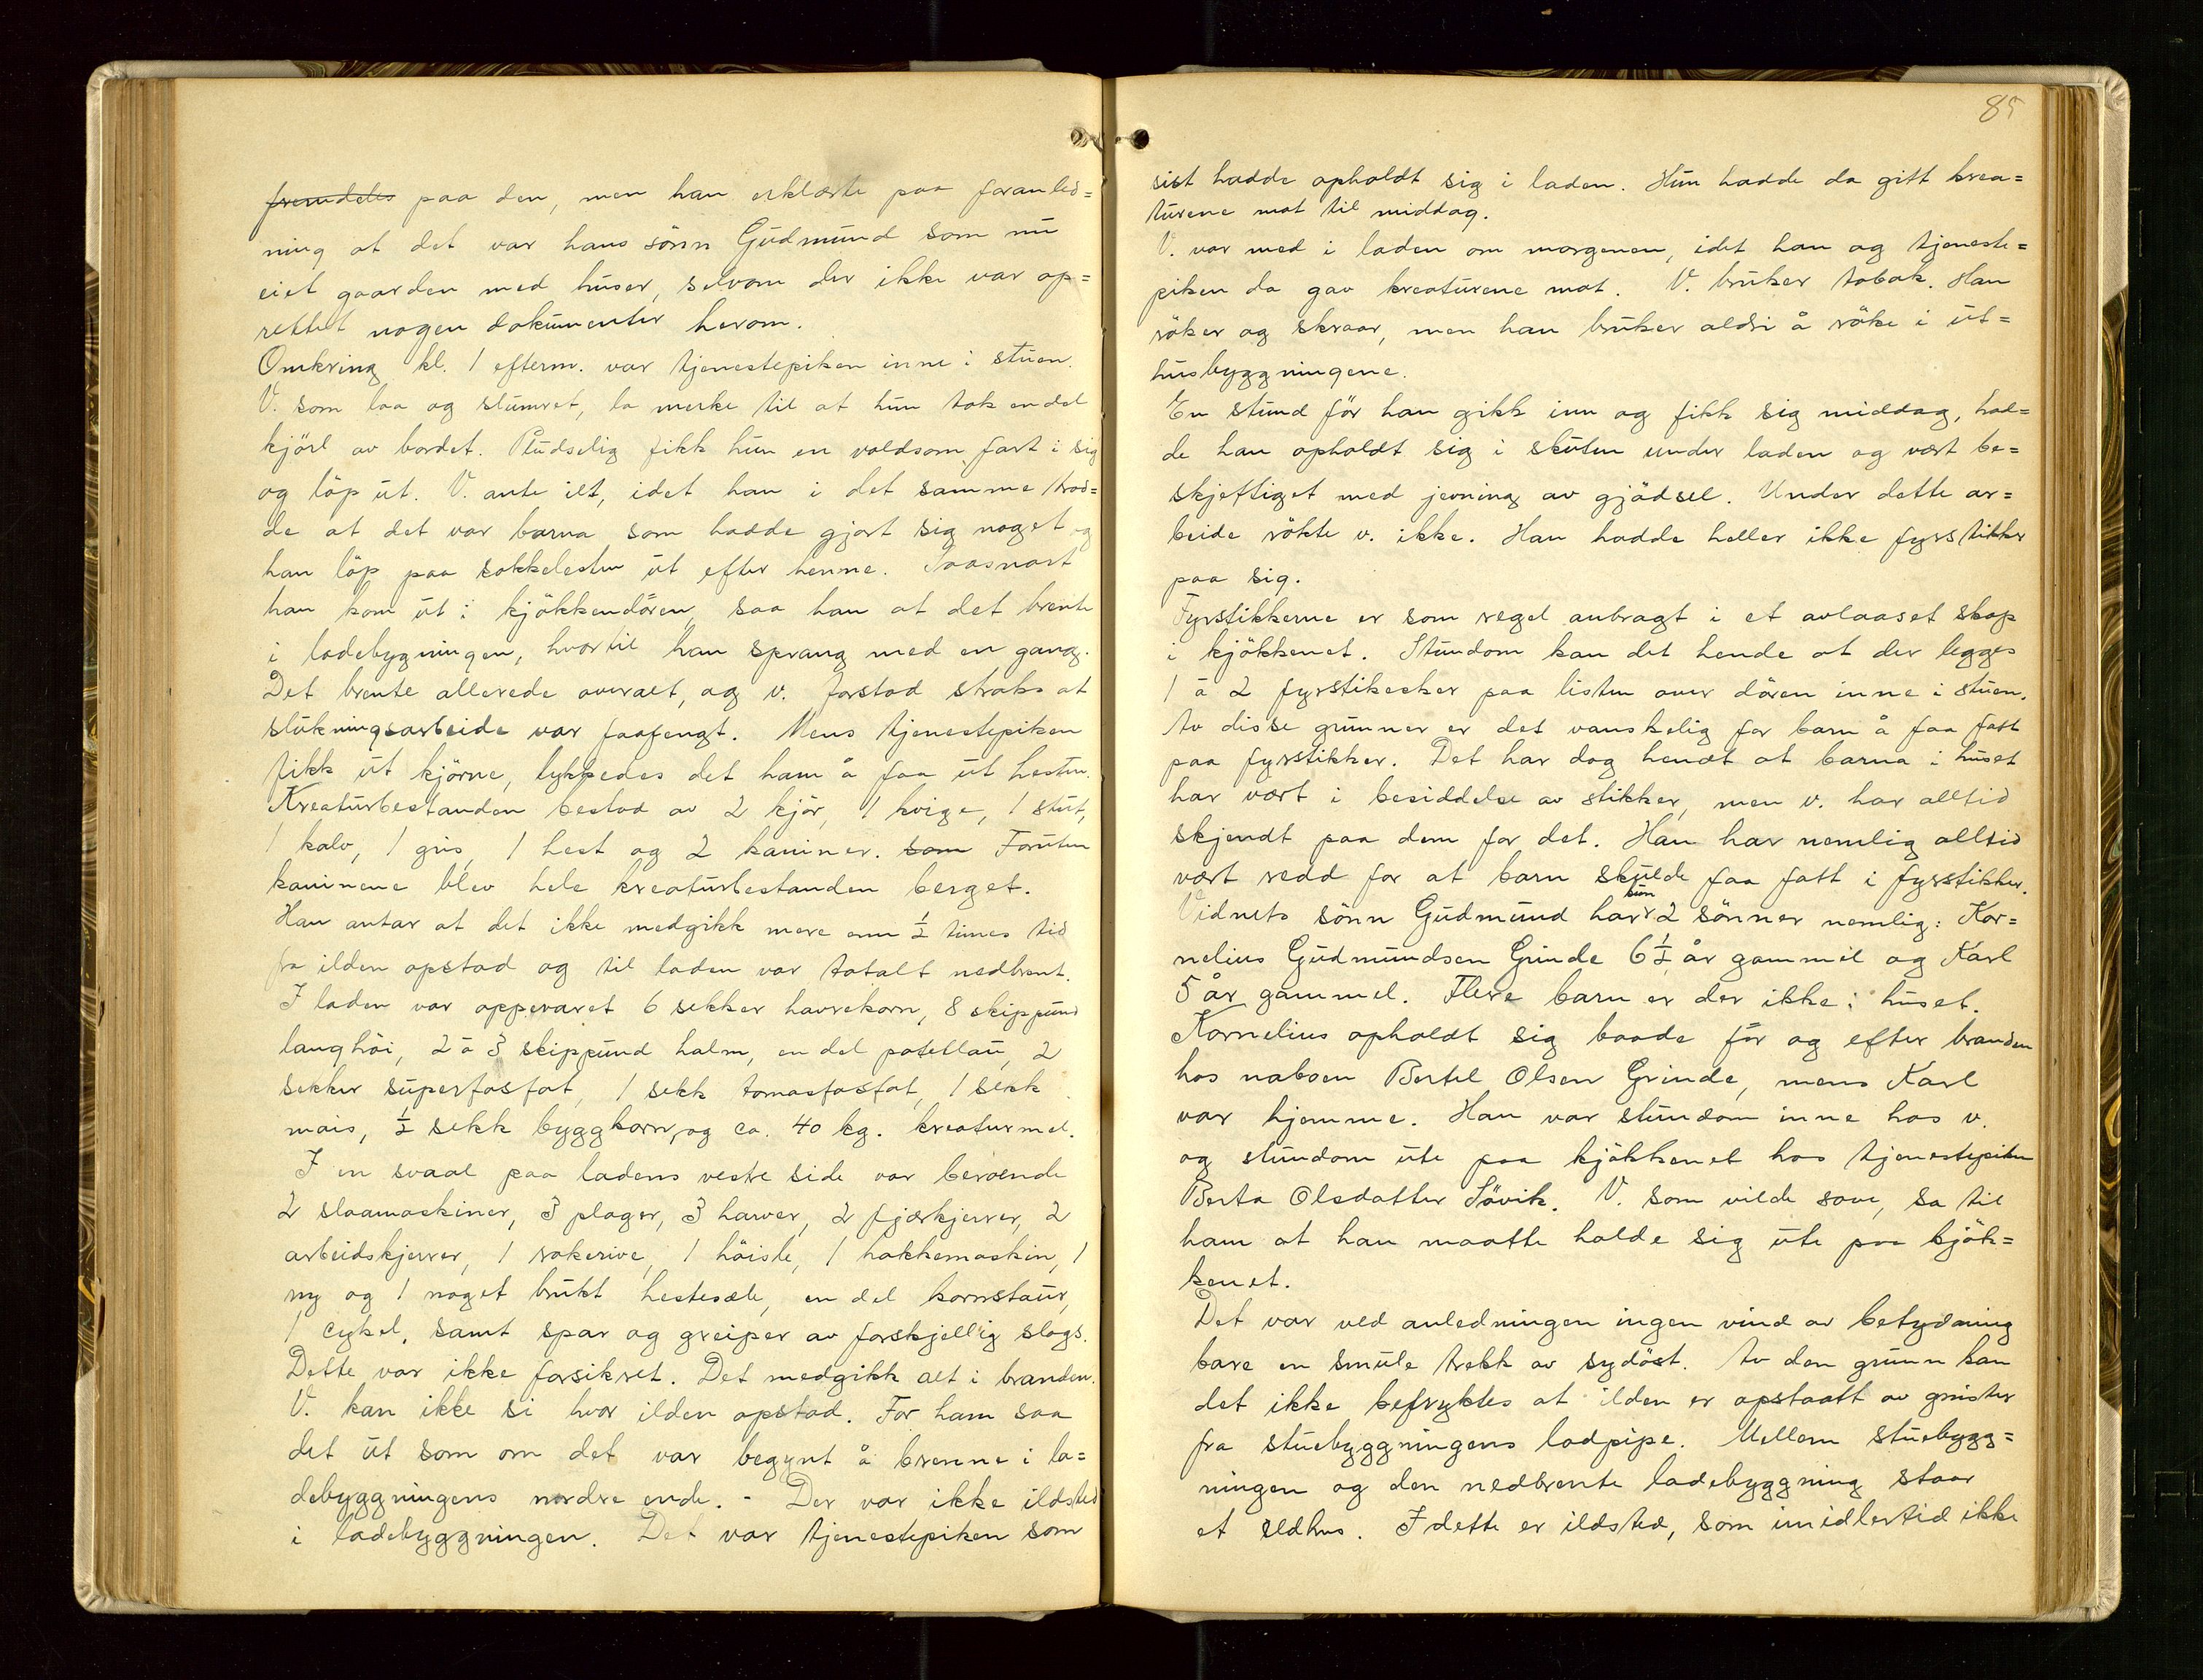 fremdeles paa den, men han erklærte paa foranled=
ning at det var hans sönn Gudmund som nu
eiet gaarden med huser, selvom der ikke var op=
rettet nogen dokumenter herom.
Omkring kl. 1 efterm. var tjenestepiken inne i stuen.
V. som laa og slumret, la merke til at hun tok endel
kjörl av bordet. Pludselig fikk hun en voldsom fart i sig
og löp ut. V. ante ilt, idet han i det samme trod=
de at det var barna som hadde gjort sig noget og
han löp paa sokkelesten ut efter henne. Saasnart
han kom ut i kjökkendören, saa han at det brente
i ladebygningen, hvortil han sprang med en gang.
Det brente allerede overalt, og v. forstod straks at
slukningsarbeide var faafengt. Mens tjenestepiken
fikk ut kjörne, lykkedes det ham å faa ut hesten.
Kreaturbestanden bestod av 2 kjör, 1 kvige, 1 stut,
1 kalv, 1 gris, 1 hest og 2 kaniner. som Foruten
kaninene blev hele kreaturbestanden berget.
Han antar at det ikke medgikk mere enn ½ times tid
fra ilden opstod og til laden var totalt nedbrent.
I laden var oppevaret 6 sekker havrekorn, 8 skippund
langhöi, 2 à 3 skippund halm, en del poteter, 2
sekker superfosfat, 1 sekk tomasfosfat, 1 sekk
mais, ½ sekk byggkorn, og ca. 40 kg. kreaturmel.
I en svaal paa ladens vestre side var beroende
2 slaamaskiner, 3 ploger, 3 harver, 2 fjærkjerrer, 2
arbeidskjerrer, 1 rakerive, 1 höisle, 1 hakkemaskin, 1
ny og 1 noget brukt hestesæle, en del kornstaur,
1 cykel, samt spar og greiper av forskjellig slags.
Dette var ikke forsikret. Det medgikk alt i branden.
V. kan ikke si hvor ilden opstod. For ham saa
det ut som om det var begynt å brenne i la=
debyggningens nordre ende. - Der var ikke ildsted
i ladebyggningen. Det var tjenestepiken som
85
sist hadde opholdt sig i laden. Hun hadde da gitt krea=
turene mat til middag.
V. var med i laden om morgenen, idet han og tjeneste=
piken da gav kreaturene mat. V. bruker tobak. Han
röker og skraar, men han bruker aldri å röke i ut=
husbyggningene.
En stund för han gikk inn og fikk sig middag, had=
de han opholdt sig i skuten under laden og vært be=
skjeftiget med jevning av gjödsel. Under dette ar=
beide rökte v. ikke. Han hadde heller ikke fyrstikker
paa sig.
Fyrstikkerne er som regel anbragt i et avlaaset skap
i kjökkenet. Stundom kan det hende at der legges
1 à 2 fyrstikesker paa listen over dören inne i stuen.
Av disse grunner er det vanskelig for barn å faa fatt
paa fyrstikker. Det har dog hendt at barna i huset
har vært i besiddelse av stikker, men v. har alltid
skjendt paa dem for det. Han har nemlig alltid
vært redd for at barn skulde faa fatt i fyrstikker.
Vidnets sönn Gudmund har kun 2 sönner nemlig: Kor=
nelius Gudmundsen Grinde 6½ år gammil og Karl
5 år gammel. Flere barn er der ikke i huset.
Kornelius opholdt sig baade för og efter branden
hos naboen Bertel Olsen Grinde, mens Karl
var hjemme. Han var stundom inne hos v.
og stundom ute paa kjökkenet hos tjenestepiken
Berta Olsdatter Sövik. V. som vilde sove, sa til
ham at han maatte holde sig ute paa kjök=
kenet.
Det var ved anledningen ingen vind av betydning
bare en smule trekk av sydöst. Av den grunn kan
det ikke befryktes at ilden er opstaatt av gnister
fra stuebyggningens lodpipe. Mellem stuebygg=
ningen og den nedbrente ladebyggning staar
et eldhus. I dette er ildsted, som imidlertid ikke